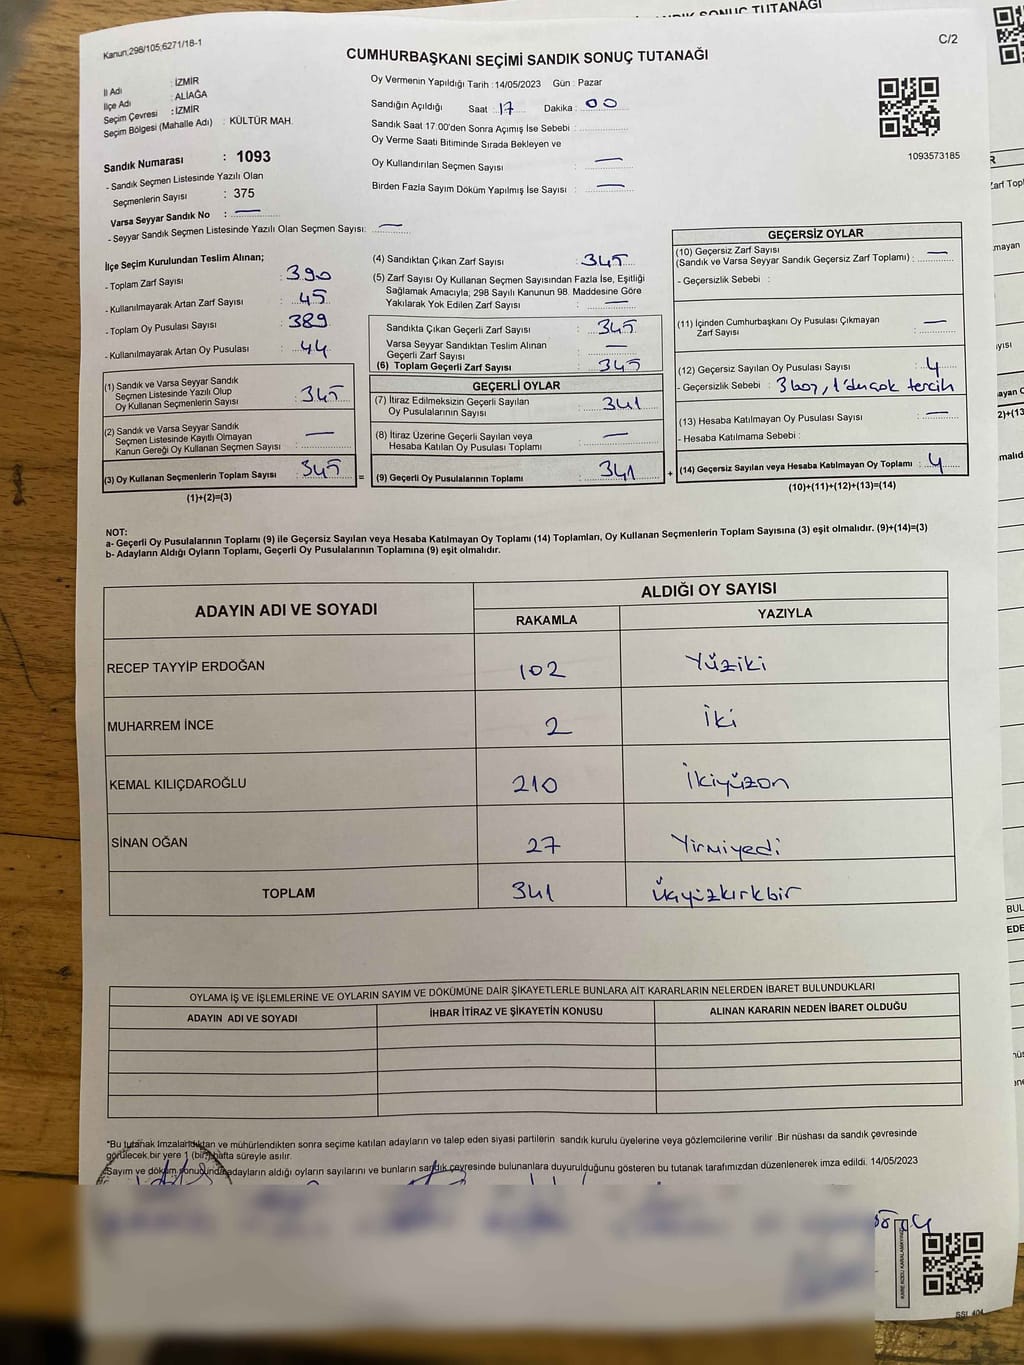 NDIK SONUÇ TUTANAĞI
Kanun;298/105;6271/18-1
C/2
CUMHURBAŞKANI SEÇİMİ SANDIK SONUÇ TUTANAĞI
İl Adı : İZMİR
İlçe Adı : ALİAĞA
Seçim Çevresi : İZMİR
Seçim Bölgesi (Mahalle Adı) : KÜLTÜR MAH.
Sandık Numarası : 1093
- Sandık Seçmen Listesinde Yazılı Olan
Seçmenlerin Sayısı : 375
Varsa Seyyar Sandık No : —
- Seyyar Sandık Seçmen Listesinde Yazılı Olan Seçmen Sayısı: —
Oy Vermenin Yapıldığı Tarih : 14/05/2023 Gün : Pazar
Sandığın Açıldığı Saat : 17 Dakika : 00
Sandık Saat 17:00'den Sonra Açımış İse Sebebi :
Oy Verme Saati Bitiminde Sırada Bekleyen ve
Oy Kullandırılan Seçmen Sayısı : —
Birden Fazla Sayım Döküm Yapılmış İse Sayısı : —
1093573185
İlçe Seçim Kurulundan Teslim Alınan;
- Toplam Zarf Sayısı : 390
- Kullanılmayarak Artan Zarf Sayısı : 45
- Toplam Oy Pusulası Sayısı : 389
- Kullanılmayarak Artan Oy Pusulası : 44
(1) Sandık ve Varsa Seyyar Sandık
Seçmen Listesinde Yazılı Olup
Oy Kullanan Seçmenlerin Sayısı : 345
(2) Sandık ve Varsa Seyyar Sandık
Seçmen Listesinde Kayıtlı Olmayan
Kanun Gereği Oy Kullanan Seçmen Sayısı : —
(3) Oy Kullanan Seçmenlerin Toplam Sayısı : 345
(1)+(2)=(3)
(4) Sandıktan Çıkan Zarf Sayısı : 345
(5) Zarf Sayısı Oy Kullanan Seçmen Sayısından Fazla İse, Eşitliği
Sağlamak Amacıyla; 298 Sayılı Kanunun 98. Maddesine Göre
Yakılarak Yok Edilen Zarf Sayısı : —
Sandıkta Çıkan Geçerli Zarf Sayısı : 345
Varsa Seyyar Sandıktan Teslim Alınan
Geçerli Zarf Sayısı : —
(6) Toplam Geçerli Zarf Sayısı : 345
GEÇERLİ OYLAR
(7) İtiraz Edilmeksizin Geçerli Sayılan
Oy Pusulalarının Sayısı : 341
(8) İtiraz Üzerine Geçerli Sayılan veya
Hesaba Katılan Oy Pusulası Toplamı : —
(9) Geçerli Oy Pusulalarının Toplamı : 341
GEÇERSİZ OYLAR
(10) Geçersiz Zarf Sayısı
(Sandık ve Varsa Seyyar Sandık Geçersiz Zarf Toplamı) : —
- Geçersizlik Sebebi :
(11) İçinden Cumhurbaşkanı Oy Pusulası Çıkmayan
Zarf Sayısı : —
(12) Geçersiz Sayılan Oy Pusulası Sayısı : 4
- Geçersizlik Sebebi : 3 boş, 1'den çok tercih
(13) Hesaba Katılmayan Oy Pusulası Sayısı : —
- Hesaba Katılmama Sebebi :
(14) Geçersiz Sayılan veya Hesaba Katılmayan Oy Toplamı : 4
(10)+(11)+(12)+(13)=(14)
NOT:
a- Geçerli Oy Pusulalarının Toplamı (9) ile Geçersiz Sayılan veya Hesaba Katılmayan Oy Toplamı (14) Toplamları, Oy Kullanan Seçmenlerin Toplam Sayısına (3) eşit olmalıdır. (9)+(14)=(3)
b- Adayların Aldığı Oyların Toplamı, Geçerli Oy Pusulalarının Toplamına (9) eşit olmalıdır.
ADAYIN ADI VE SOYADI
ALDIĞI OY SAYISI
RAKAMLA YAZIYLA
RECEP TAYYİP ERDOĞAN 102 Yüziki
MUHARREM İNCE 2 İki
KEMAL KILIÇDAROĞLU 210 İkiyüzon
SİNAN OĞAN 27 Yirmiyedi
TOPLAM 341 Üçyüzkırkbir
OYLAMA İŞ VE İŞLEMLERİNE VE OYLARIN SAYIM VE DÖKÜMÜNE DAİR ŞİKAYETLERLE BUNLARA AİT KARARLARIN NELERDEN İBARET BULUNDUKLARI
ADAYIN ADI VE SOYADI İHBAR İTİRAZ VE ŞİKAYETİN KONUSU ALINAN KARARIN NEDEN İBARET OLDUĞU
*Bu tutanak İmzalandıktan ve mühürlendikten sonra seçime katılan adayların ve talep eden siyasi partilerin sandık kurulu üyelerine veya gözlemcilerine verilir .Bir nüshası da sandık çevresinde
görülecek bir yere 1 (bir) hafta süreyle asılır.
Sayım ve döküm sonucunda adayların aldığı oyların sayılarını ve bunların sandık çevresinde bulunanlara duyurulduğunu gösteren bu tutanak tarafımızdan düzenlenerek imza edildi. 14/05/2023